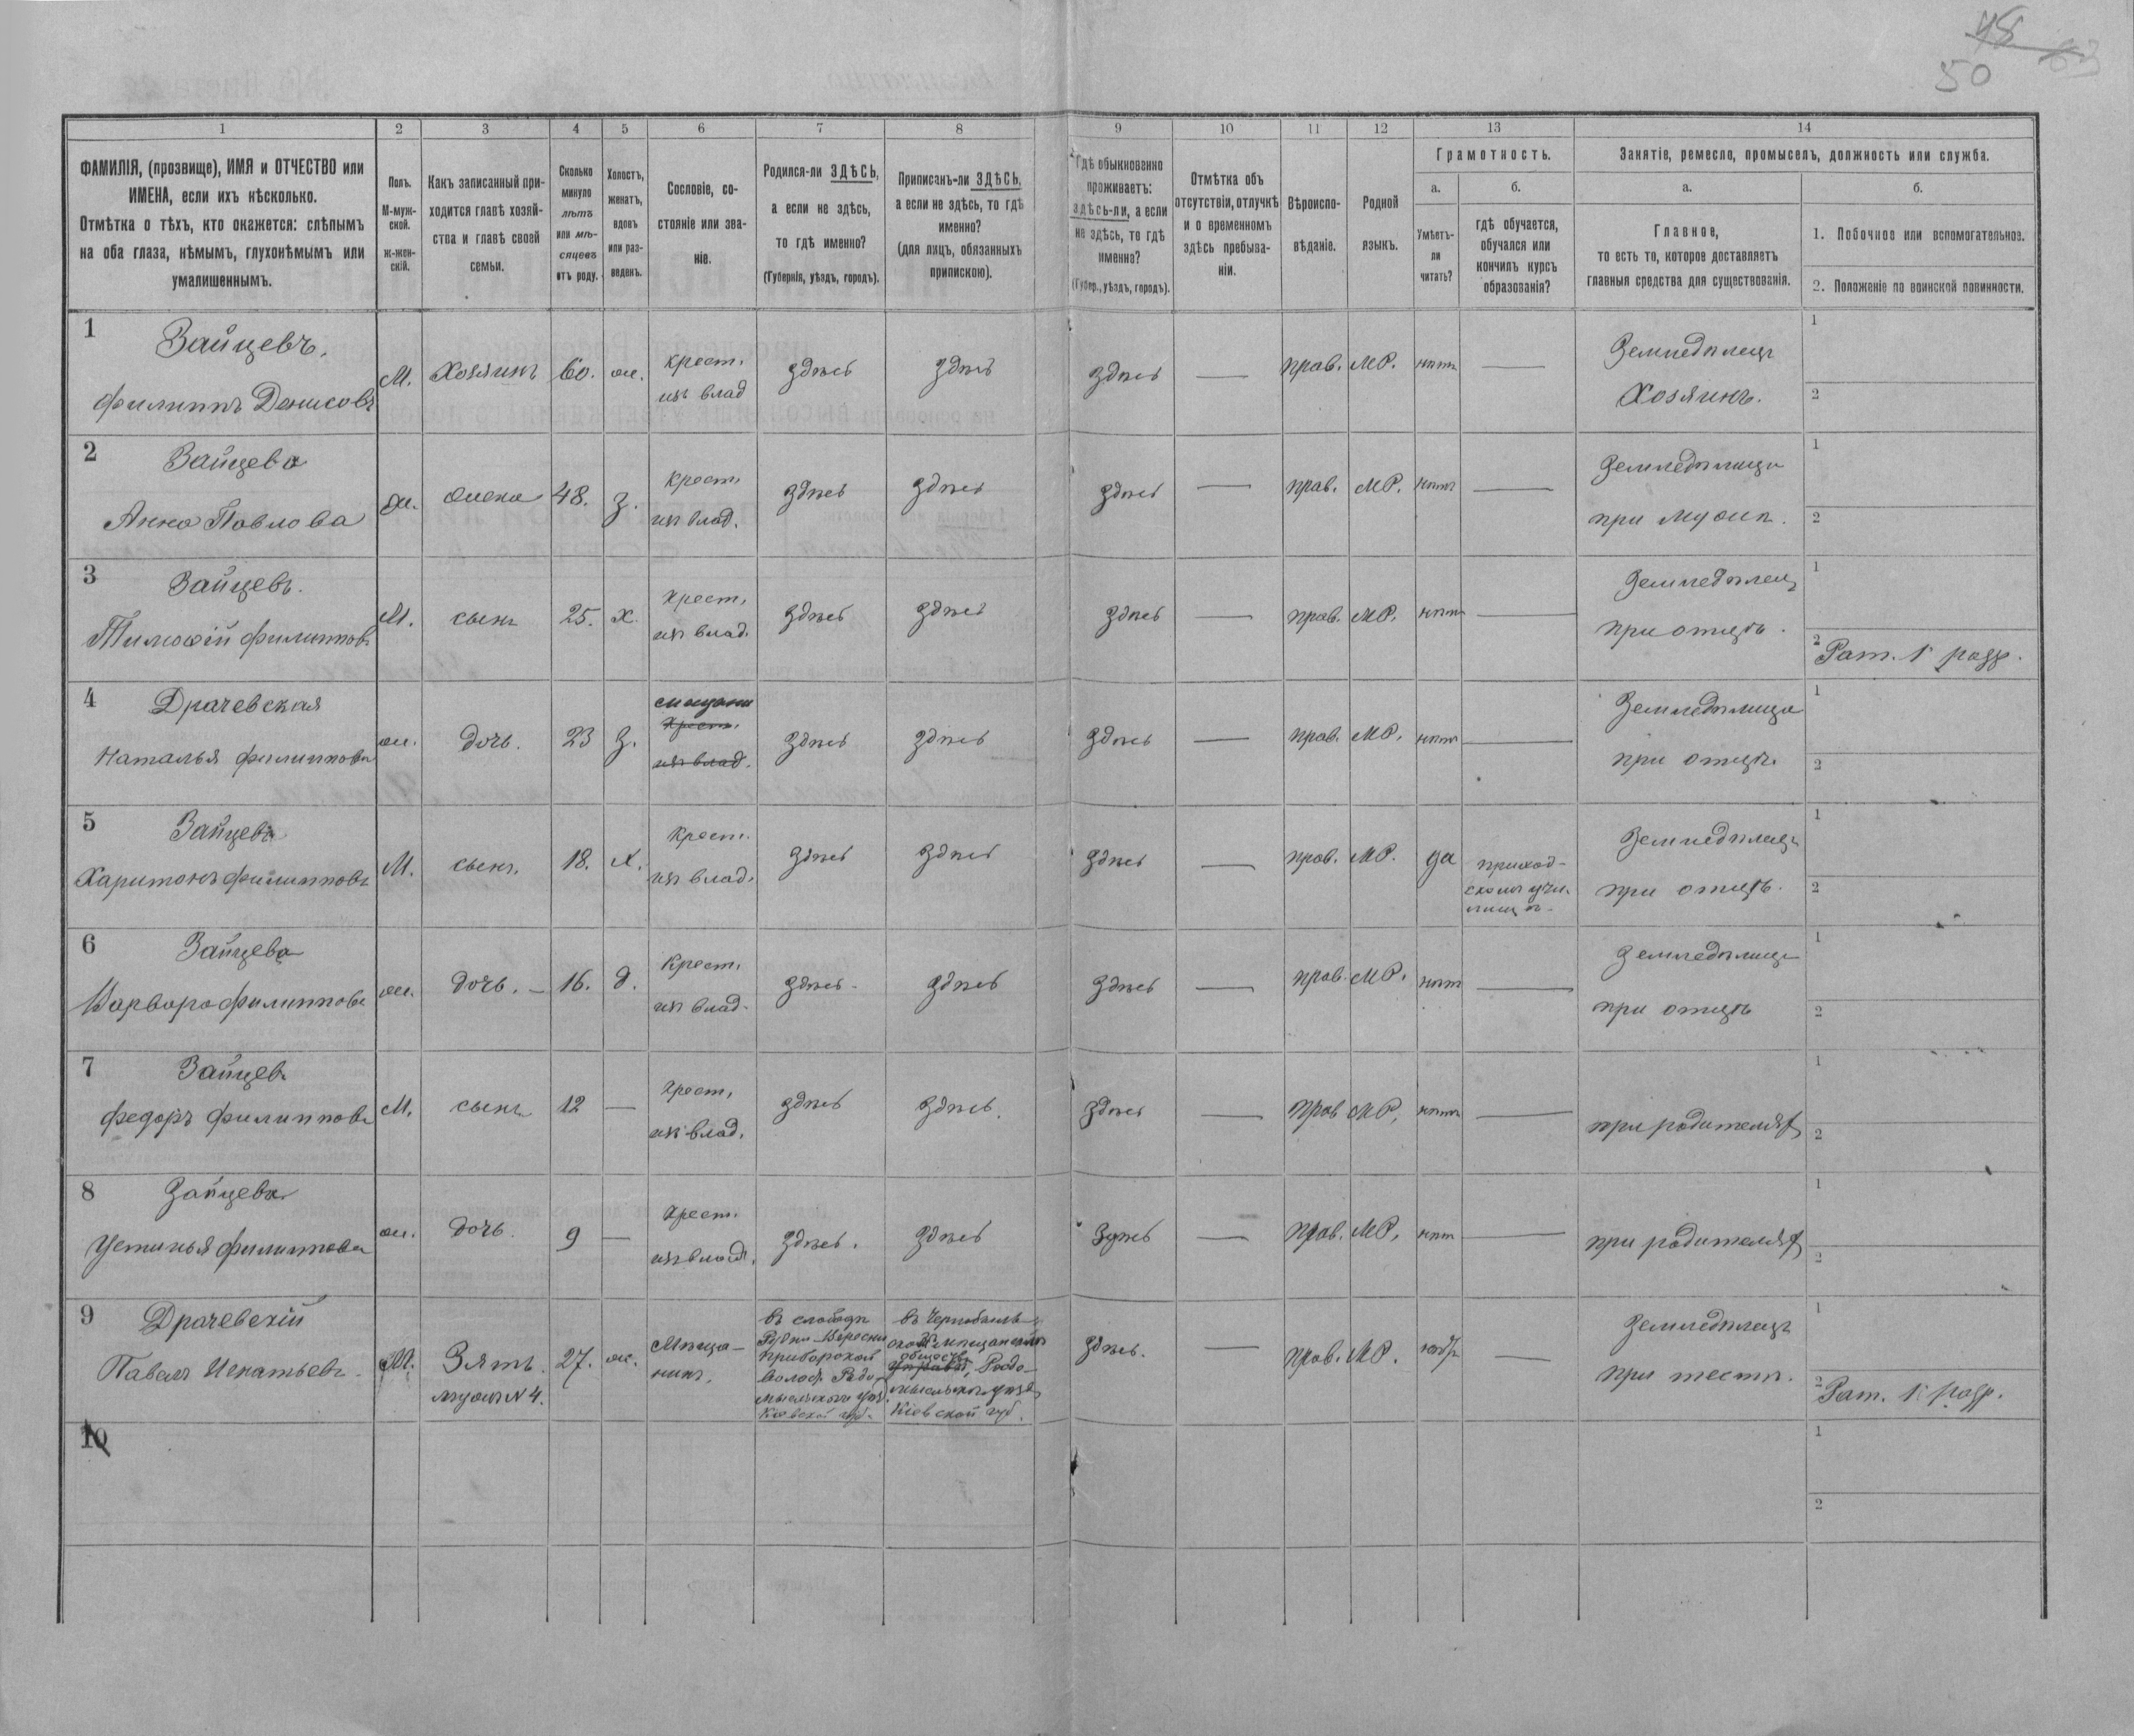 48
50
63
1
2
3
4
5
6
7
8
9
10
11
12
13
14
ФАМИЛІЯ, (прозвище), ИМЯ и ОТЧЕСТВО или
ИМЕНА, если ихъ нѣсколько.
Отмѣтка о тѣхъ, кто окажется: слѣпымъ
на оба глаза, нѣмымъ, глухонѣмымъ или
умалишеннымъ.
Полъ.
М-муж-
ской.
ж-жен-
скій.
Какъ записанный при-
ходится главѣ хозяй-
ства и главѣ своей
семьи.
Сколько
минуло
лѣтъ
или мѣ-
сяцевъ
отъ роду.
Холостъ,
женатъ,
вдовъ
или раз-
веденъ.
Сословіе, со-
стояніе или зва-
ніе.
Родился-ли ЗДѢСЬ,
а если не здѣсь,
то гдѣ именно?
(Губернія, уѣздъ, городъ).
Приписанъ-ли ЗДѢСЬ,
а если не здѣсь, то гдѣ
именно?
(для лицъ, обязанныхъ
припискою).
Гдѣ обыкновенно
проживаетъ:
здѣсь-ли, а если
не здѣсь, то гдѣ
именно?
(Губер., уѣздъ, городъ).
Отмѣтка объ
отсутствіи, отлучкѣ
и о временномъ
здѣсь пребыва-
ніи.
Вѣроиспо-
вѣданіе.
Родной
языкъ.
Грамотность.
а.
Умѣетъ-
ли
читать?
б.
гдѣ обучается,
обучался или
кончилъ курсъ
образованія?
Занятіе, ремесло, промыселъ, должность или служба.
а.
Главное,
то есть то, которое доставляетъ
главныя средства для существованія.
б.
1. Побочное или вспомогательное.
2. Положеніе по воинской повинности.
1 Зайцевъ.
Филиппъ Денисовъ
М. Хозяинъ 60. ж. крест. изъ влад здѣсь здѣсь здѣсь — прав. МР. нѣтъ —
Земледѣлецъ
Хозяинъ.
1
2
2 Зайцева
Анна Павлова
ж. жена 48. з. крест. изъ влад. здѣсь здѣсь здѣсь — прав. МР. нѣтъ —
Земледѣлица
при мужѣ.
1
2
3 Зайцевъ.
Тимофій Филипповъ
М. сынъ 25. х. крест. изъ влад. здѣсь здѣсь здѣсь — прав. МР. нѣтъ —
Земледѣлецъ
при отцѣ.
1
2 Рат. 1 разр.
4 Драчевская
Наталья Филиппова
ж. дочь. 23 з. мѣщанка крест. изъ влад. здѣсь здѣсь здѣсь — прав. МР. нѣтъ —
Земледѣлица
при отцѣ.
1
2
5 Зайцевъ
Харитонъ Филипповъ
М. сынъ. 18. х. крест. изъ влад. здѣсь здѣсь здѣсь — прав. МР. да
приход-
скомъ учи-
лищѣ
Земледѣлецъ
при отцѣ.
1
2
6 Зайцева
Варвара Филиппова
ж. дочь. — 16. д. крест. изъ влад. здѣсь здѣсь здѣсь — прав. МР. нѣтъ —
Земледѣлица
при отцѣ
1
2
7 Зайцевъ
Федоръ Филипповъ
М. сынъ 12 — крест. изъ влад. здѣсь здѣсь. здѣсь — прав МР. нѣтъ —
при родителях
1
2
8 Зайцева
Устинья Филиппова
ж. дочь. 9 — крест. изъ влад. здѣсь. здѣсь здѣсь — прав. МР. нѣтъ —
при родителях
1
2
9 Драчевскій
Павелъ Игнатьевъ.
М. Зять. мужъ N4. 27. ж.
Мѣща-
нинъ.
въ слободѣ
Рудни-Вересни
Приборской
волос. Радо-
мысльскаго уѣз.
Кіевской губ.
въ Чернобыль-
скомъ мѣщанскомъ
обществѣ
управѣ, Радо-
мысльскаго уѣзда
Кіевской губ.
здѣсь. — прав. МР. —
Земледѣлецъ
при тестѣ.
1
2 Рат. 1 разр.
10
1
2